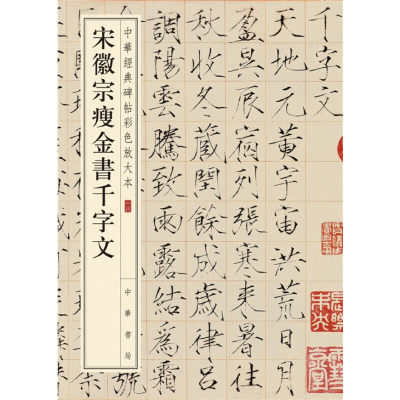 中華經典碑帖彩色放大本
宋徽宗瘦金書千字文
中華書局
千字文
天地元黃宇宙洪荒日月
盈昃辰宿列張寒来暑往
秋收冬藏閏餘成歲律呂
調陽雲騰致雨露結爲霜
號